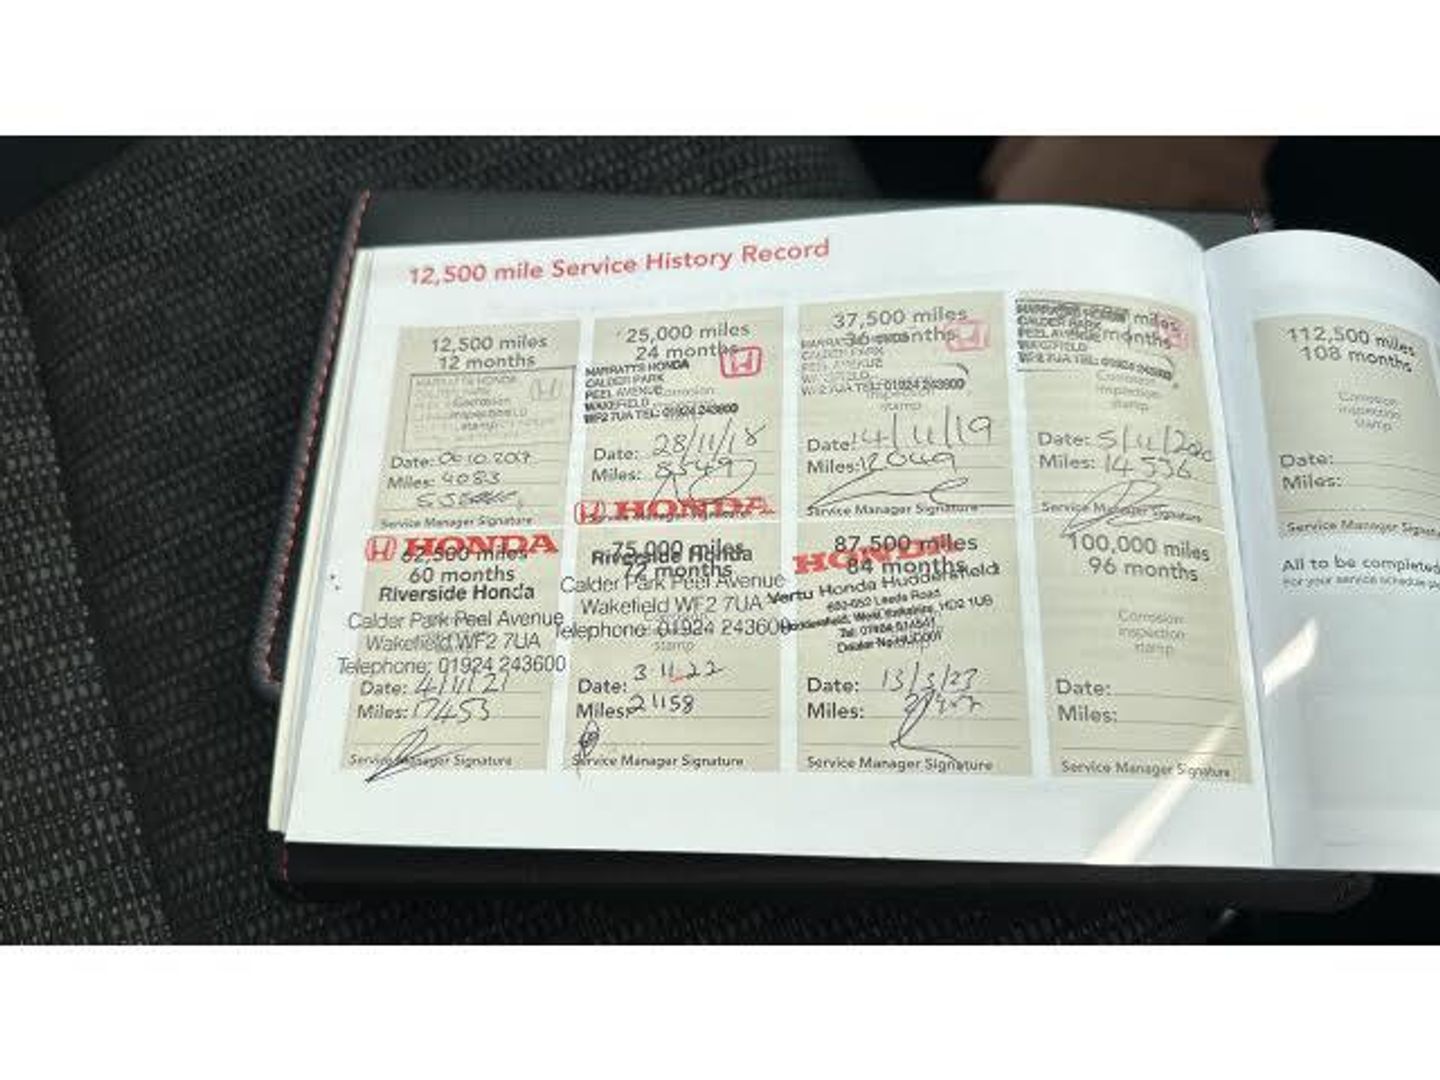 12,500 mile Service History Record
12,500 miles
12 months
MARRATTS HONDA
CALDER PARK
Corrosion
inspection
stamp
Date: 06.10.2017
Miles: 4083
Service Manager Signature
25,000 miles
24 months
MARRATTS HONDA
CALDER PARK
PEEL AVENUE Corrosion
WAKEFIELD
WF2 7UA TEL: 01924 243600
Date: 28/11/18
Miles: 8549
37,500 miles
36 months
MARRATTS HONDA
CALDER PARK
PEEL AVENUE
WF2 7UA TEL: 01924 243600
stamp
Date: 14/11/19
Miles: 12049
Service Manager Signature
MARRATTS HONDA miles
CALDER PARK months
PEEL AVENUE
WAKEFIELD
WF2 7UA TEL: 01924 243600
Corrosion
inspection
stamp
Date: 5/11/2020
Miles: 14536
Service Manager Signature
112,500 miles
108 months
Corrosion
inspection
stamp
Date:
Miles:
Service Manager
HONDA
62,500 miles
60 months
Riverside Honda
Calder Park Peel Avenue
Wakefield WF2 7UA
Telephone: 01924 243600
Date: 4/11/21
Miles: 17453
Service Manager Signature
HONDA
75,000 miles
Riverside Honda
72 months
Calder Park Peel Avenue
Wakefield WF2 7UA
Telephone: 01924 243600
stamp
Date: 3 11 22
Miles: 21158
Service Manager Signature
87,500 miles
HONDA
84 months
Vertu Honda Huddersfield
Leeds Road
Huddersfield, West Yorkshire, HD2 1UB
Date: 13/3/23
Miles:
Service Manager Signature
100,000 miles
96 months
Corrosion
inspection
stamp
Date:
Miles:
Service Manager Signature
All to be completed
For your service schedule